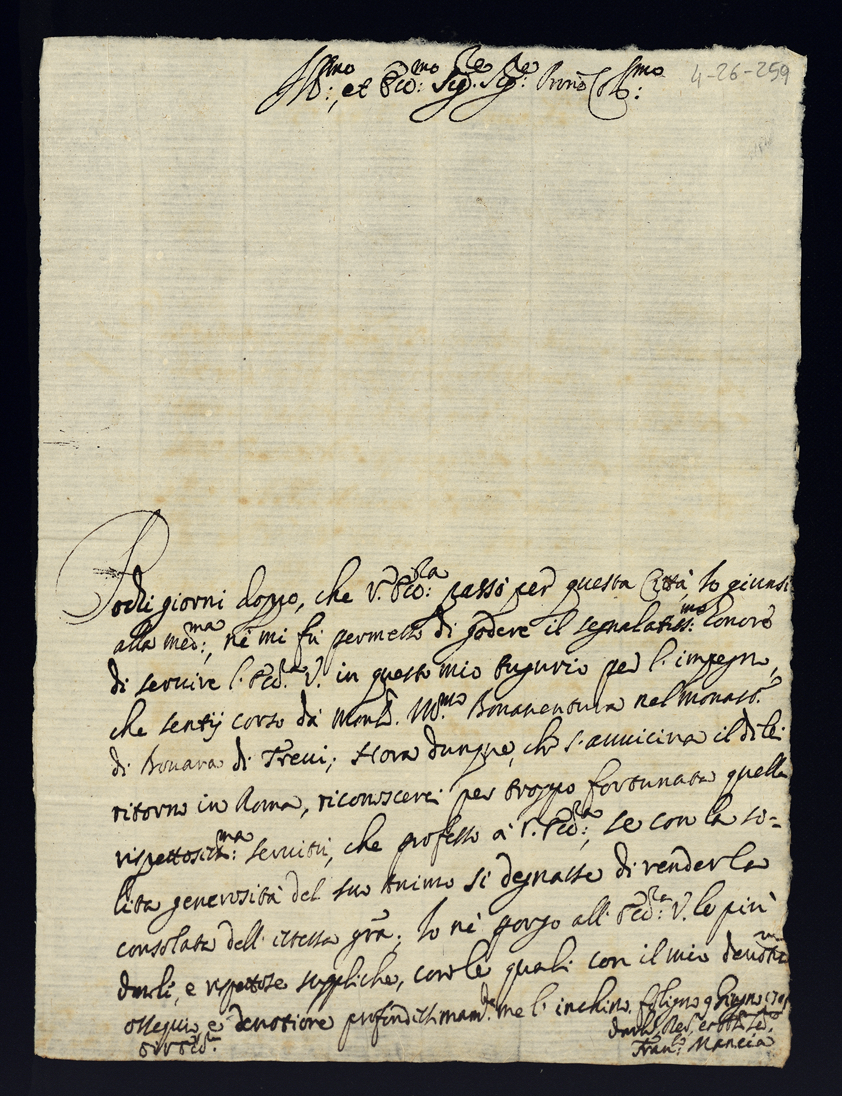 Ill:mo, et Ecc:mo Sig:re Sig:re Pron Col:mo
4-26-259
Pochi giorni dopo, che V. Ecc:za passò per questa Città, Io giunsi
alla med:ma, nè mi fù permesso di godere il segnalatiss:mo honore
di servire l'Ecc:a V. in questo mio tugurio per l'impegno,
che sentij corso da Bonaventura nel Monast.
di Bovara di Trevi; Hora dunque, che s'avvicina il di lei
ritorno in Roma, riconoscerei per troppo fortunata quella
rispettosiss:ma servitù, che professo à V. Ecc:za, se con la so=
lita generosità del suo Animo si degnasse di render la
consolata dell'istessa gra; Io nè porgo all'Ecc:za V. le più
e rispettose suppliche, con le quali con il mio
ossequio, e devotione me l'inchino. Foligno 9 Giugno
Di V. Ecc:
Fran:co Mancia